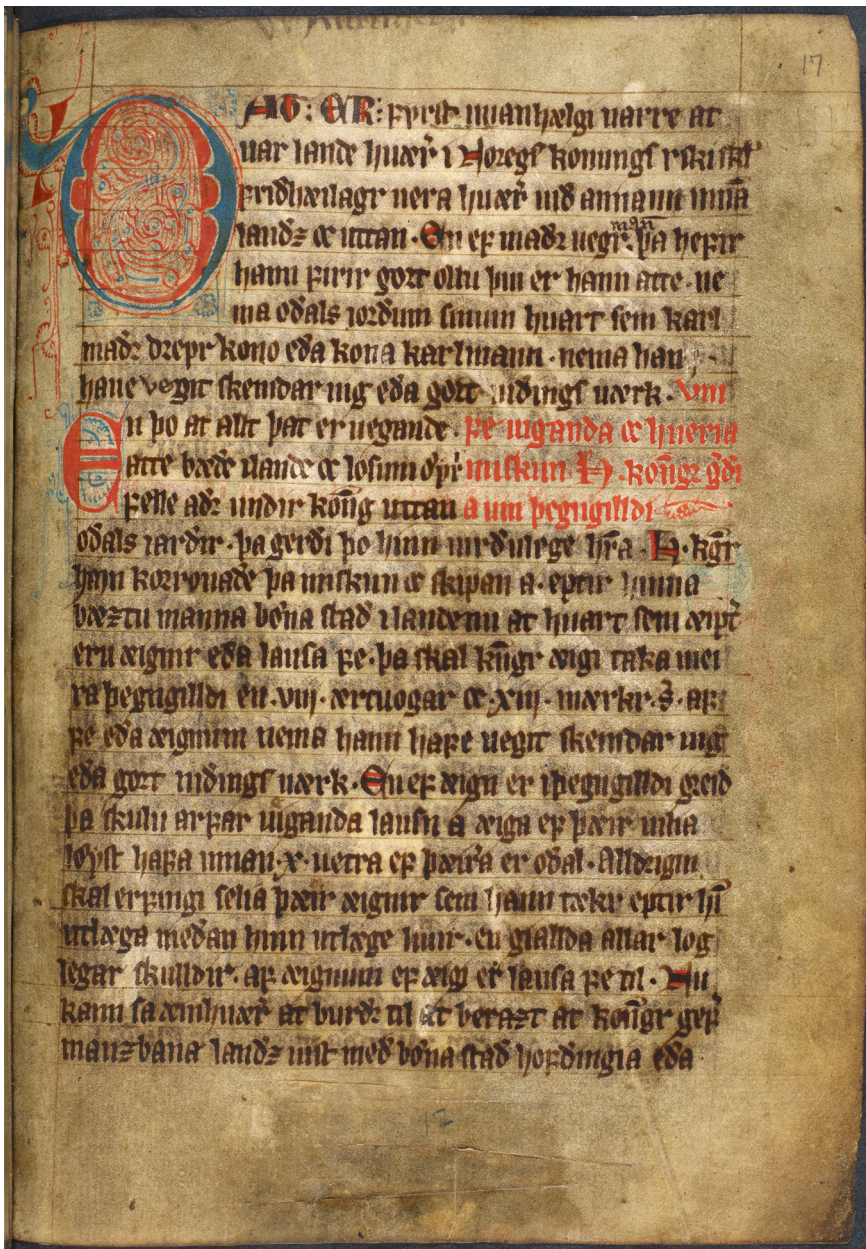 ÞAT: ER: fyrst manhælgi varre at
var lande huær i Noregs konungs
fridhæilagr vera huær vid annann innā
landz oc uttan. En ef madr uegr man þa hefir
hann firir gort ollu þui er hann atte. ne
ma odals iordum sinum huart sem karl
madr drepr kono eda kona karlmann. nema han
have vegit skemdar uig eda gort nidings uærk. VIII
En þo at allt þat er uegande. fe uiganda oc hueria
atte bæde ilande oc losum
felle adr undir kong uttan a um þegngilldi
odals iardir. þa gerdi þo hinn uirdulege h̄ra. H. kgr
ham korrouade þa miskun oc skipan a. eptir hinna
bæztu manna bóna stad ilandenu at huart sem æipt
eru æignir eda lausa fe. þa skal kn̄gr æigi taka mei
ra þegngilldi en. viij. ærtuogar oc. xiij. mærkr. s. af
fe eda æignum nema hann hafe uegit skemdar uig
eda gort nidings uærk. En ef æign er iþegngilldi greid
þa skulu arfar uiganda lausn a æiga ef þæir uilia
løyst hafa innan. x. uetra ef þæira er odal. Alldrigin
skal erfingi selia þæir æignir sem hann tækr eptir hī
utlæga medan hinn utlæge liuir. en giallda allar log
legar skulldir. af æignum ef æigi er lausa fe til. Nu
kann sa æinhuær at burdr til at berazt at kon̄gr gefr
manzbana landz uist med bóna stad hofdingia eda
17